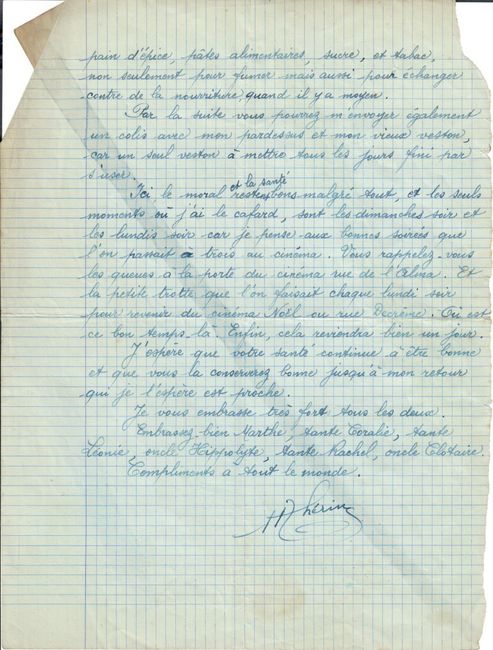 pain d'épice, pâtes alimentaires, sucre, et tabac,
non seulement pour fumer mais aussi pour échanger
contre de la nourriture, quand il y a moyen.
Par la suite vous pourrez m'envoyer également
un colis avec mon pardessus et mon vieux veston,
car un seul veston à mettre tous les jours fini par
s'user.
Ici, le moral et la santé restent bons malgré tout, et les seuls
moments où j'ai le cafard, sont les dimanches soir et
les lundis soir car je pense aux bonnes soirées que
l'on passait à trois au cinéma. Vous rappelez-vous
les queues à la porte du cinéma rue de l'Alma. Et
la petite trotte que l'on faisait chaque lundi soir
pour revenir du cinéma Noël ou rue Decrême. Où est
ce bon temps-là. Enfin, cela reviendra bien un jour.
J'espère que votre santé continue à être bonne
et que vous la conserverez bonne jusqu'à mon retour
qui je l'espère est proche.
Je vous embrasse très fort tous les deux.
Embrassez-bien Marthe, tante Coralie, tante
Léonie, oncle Hippolyte, tante Rachel, oncle Clotaire.
Compliments à tout le monde.